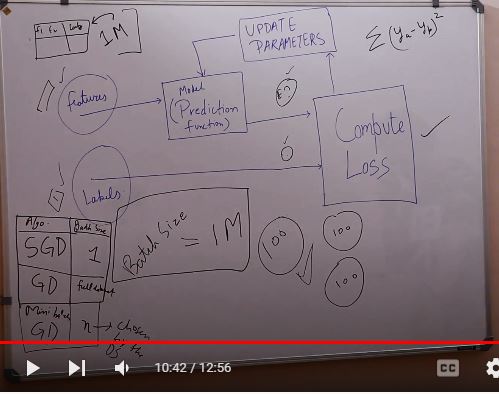 1M
UPDATE
PARAMETERS
Σ(yₐ-y_b)²
features
Model
(Prediction
function)
Compute
Loss
Labels
Algo Batch Size
SGD 1
GD
Mini batch
GD n → chosen
Batch Size
= 1M
100
100
100
10:42 / 12:56
CC